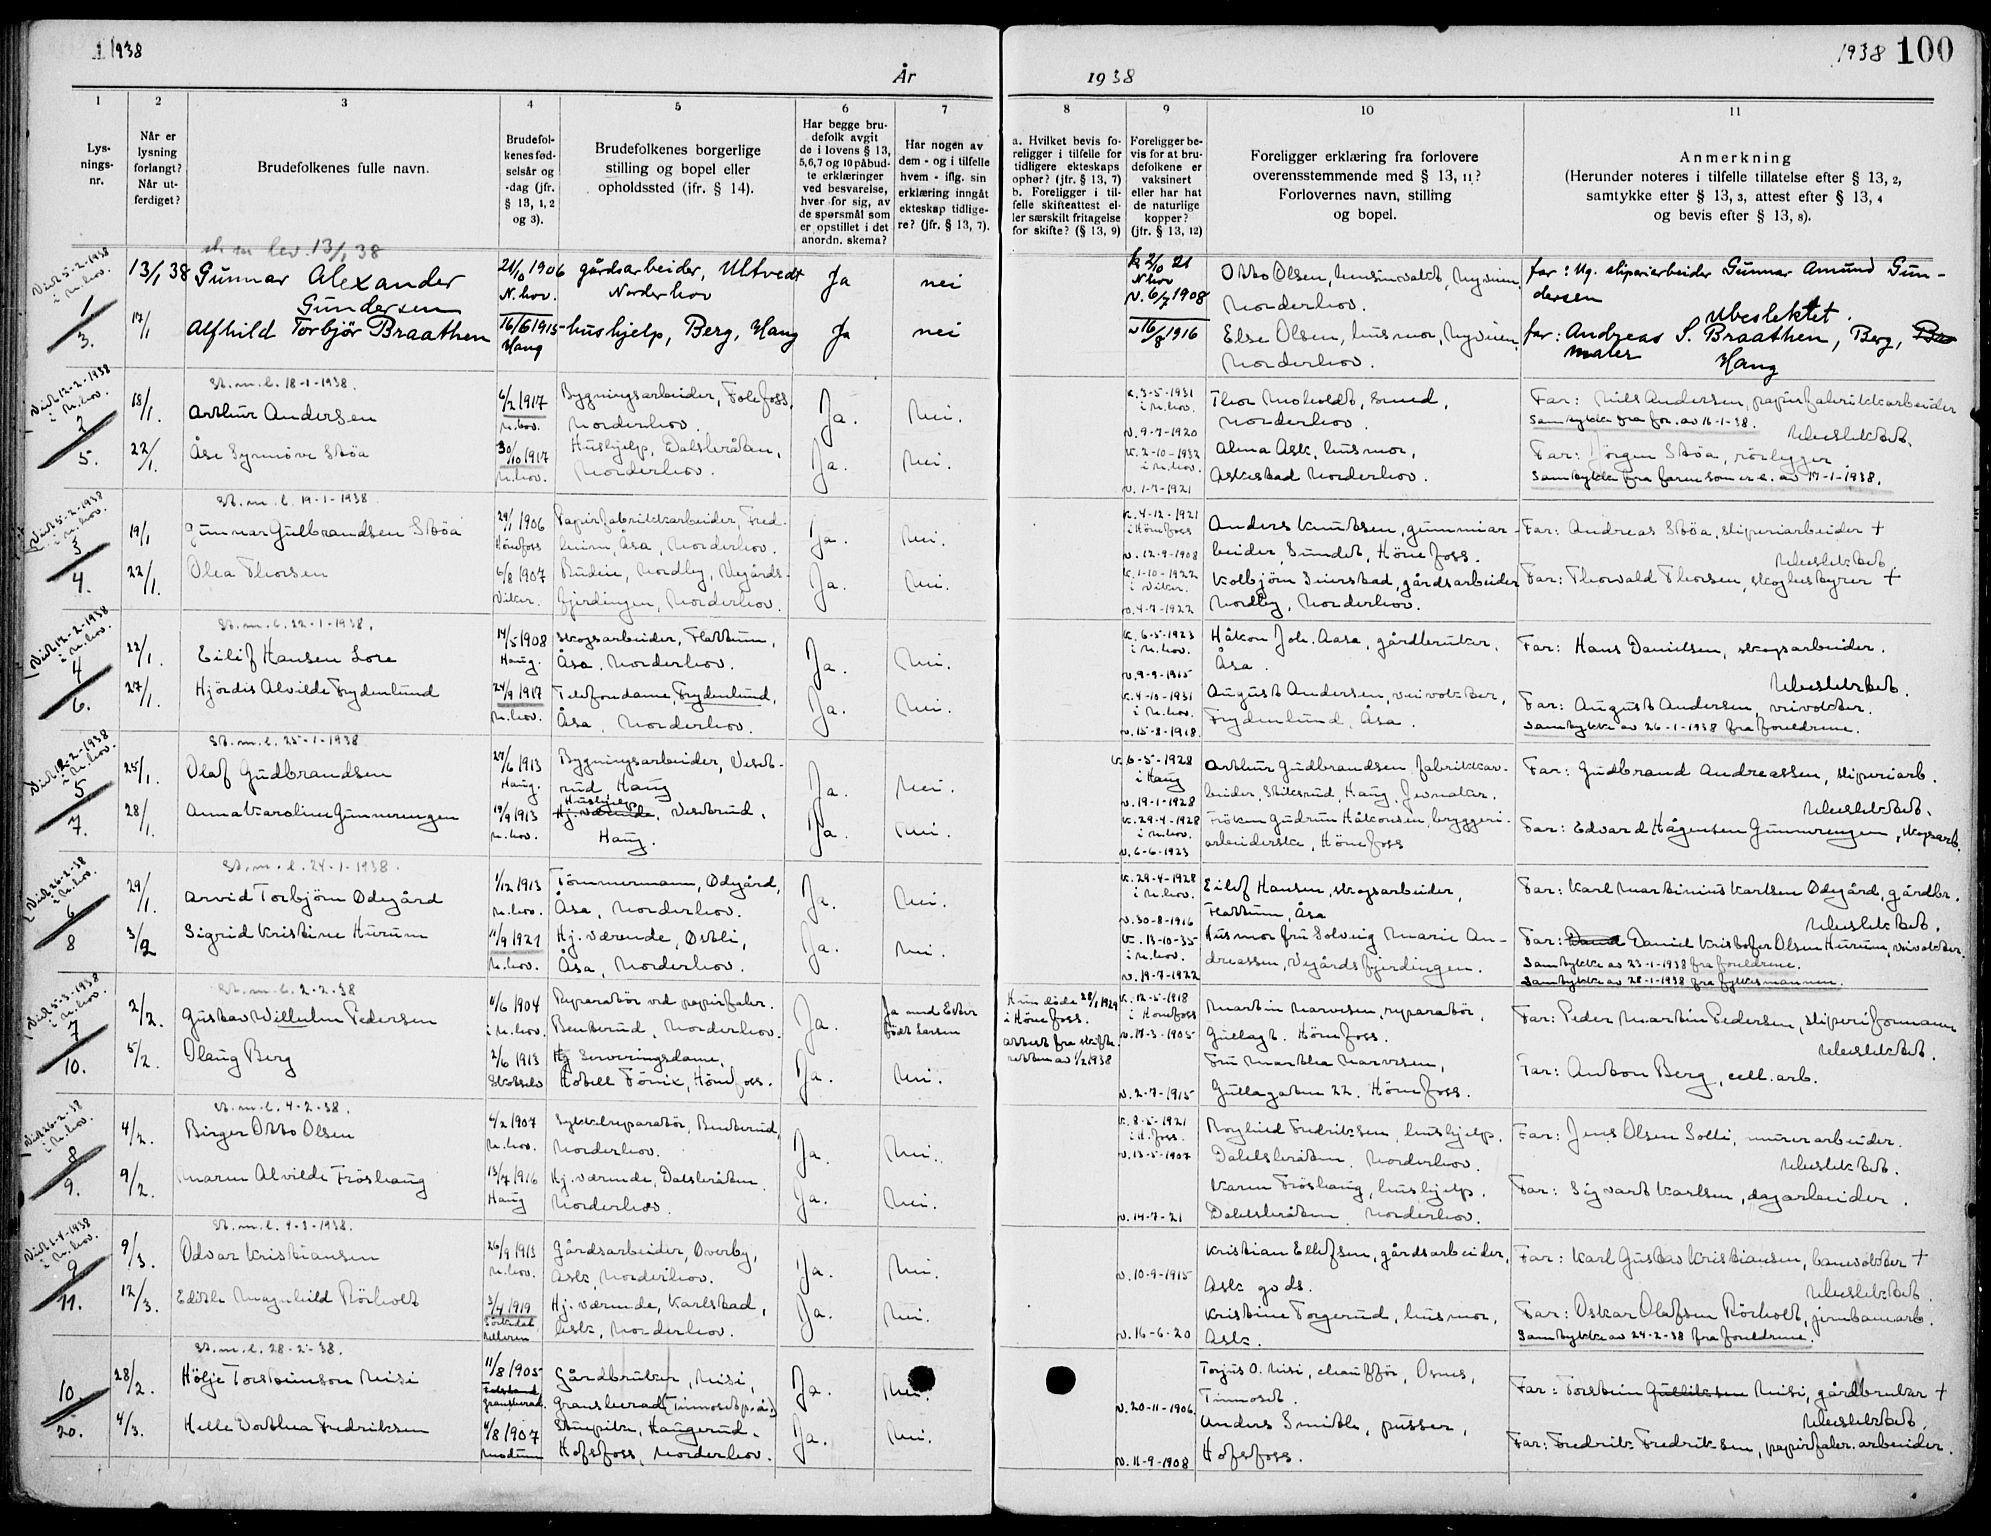 1 1938
År
1938
1938 100
1
2
3
4
5
6
7
8
9
10
11
Lys-
nings-
nr.
Når er
lysning
forlangt?
Når ut-
ferdiget?
Brudefolkenes fulle navn.
Brudefol-
kenes fød-
selsår og
-dag (jfr.
§ 13, 1, 2
og 3).
Brudefolkenes borgerlige
stilling og bopel eller
opholdssted (jfr. § 14).
Har begge bru-
defolk avgit
de i lovens § 13,
5,6,7 og 10 påbud-
te erklæringer
ved besvarelse,
hver for sig, av
de spørsmål som
er opstillet i det
anordn. skema?
Har nogen av
dem - og i tilfelle
hvem - iflg. sin
erklæring inngåt
ekteskap tidlige-
re? (jfr. § 13, 7).
a. Hvilket bevis fo-
religger i tilfelle for
tidligere ekteskaps
ophør? (jfr. § 13, 7)
b. Foreligger i til-
felle skifteattest el-
ler særskilt fritagelse
for skifte? (§ 13, 9)
Foreligger be-
vis for at bru-
defolkene er
vaksinert
eller har hat
de naturlige
kopper?
(jfr. § 13, 12)
Foreligger erklæring fra forlovere
overensstemmende med § 13, 11?
Forlovernes navn, stilling
og bopel.
Anmerkning
(Herunder noteres i tilfelle tillatelse efter § 13, 2,
samtykke efter § 13, 3, attest efter § 13, 4
og bevis efter § 13, 8).
lev. 13/1 38
Viet 5-2-1938
i N.hov.
1
3.
13/1 38
17/1
Gunnar Alexander
Gundersen
Alfhild Torbjør Braathen
1906
N. hov.
16/6 1915
Haug
gårdsarbeider, Ultvedt
Norderhov
hushjelp, Berg, Haug
Ja
Ja
nei
nei
k 2/10 21
N hov
v. 6/7 1908
v 16/8 1916
Otto Olsen, Nyveien
Norderhov.
Else Olsen, husmor, Nyveien,
Norderhov.
far: sliperiarbeider Gunnar Amund Gun-
dersen
Ubeslektet.
far: Andreas S. Braathen, Berg,
maler Haug
st. m. l. 18-1-1938.
Viet 12-2-1938
i N.hov.
2
5.
18/1.
22/1.
Arthur Andersen
Åse Synnöve Stöa
6/2 1917
N.hov.
30/10 1917
N.hov.
Bygningsarbeider, Follefoss,
Norderhov.
Hushjelp, Dalsbråten,
Norderhov.
Ja.
Ja.
Nei.
Nei.
k. 3-5-1931
i N.hov.
v. 9-7-1920
k. 2-10-1932
i N.hov.
v. 1-7-1921
Thor Moholdt, smed,
Norderhov.
Alma Ask, husmor,
Askestad Norderhov.
Far: Nils Andersen, papirfabrikkarbeider
Samtykke fra for. av 16-1-38.
Ubeslektet.
Far: Jörgen Stöa, rörlegger
Samtykke fra faren som er e. av 17-1-1938.
st. m. l. 19-1-1938.
Viet 5-2-1938
i N.hov.
3
4.
19/1
22/1.
Gunnar Gulbrandsen Stöa
Olea Thorsen
29/1 1906
Hönefoss
6/8 1907
Viker.
Papirfabrikkarbeider, Fred-
heim, Åsa, Norderhov.
Budeie, Nordby, Vegårds-
fjerdingen, Norderhov.
Ja.
Ja.
Nei.
Nei.
k. 4-12-1921
i Hönefoss
v. 12-9-1908
k. 1-10-1922
i Viker.
v. 4-7-1922
Anders Knutsen, gummiar-
beider, Sundet, Hönefoss.
Kolbjörn Seierstad, gårdsarbeider
Nordby, Norderhov.
Far: Andreas Stöa, sliperiarbeider +
Ubeslektet
Far: Thorvald Thorsen, skogbestyrer +
st. m. l. 22-1-1938.
Viet 12-2-1938
i N.hov.
4
6.
22/1.
27/1.
Eilif Hansen Lore
Hjördis Alvilde Frydenlund
14/5 1908
Haug.
24/9 1917
N.hov.
Skogsarbeider, Flattum,
Åsa, Norderhov.
Telefondame, Frydenlund,
Åsa, Norderhov.
Ja.
Ja.
Nei.
Nei.
k. 6-5-1923
i N.hov.
v. 9-9-1915
k. 4-10-1931
i N.hov.
v. 15-8-1918.
Håkon Joh. Aasa, gårdbruker,
Åsa.
August Andersen, veivokter,
Frydenlund, Åsa.
Far: Hans Danielsen, skogsarbeider.
Ubeslektet.
Far: August Andersen, veivokter.
Samtykke av 26-1-1938 fra foreldrene.
st. m. l. 25-1-1938
Viet 12-2-1938
i N.hov.
5
7.
25/1.
28/1.
Olaf Gudbrandsen
Anna Karoline Gunnerengen
27/6 1913
Haug.
19/9 1913
N.hov.
Bygningsarbeider, Vest-
rud, Haug
Hushjelp
Hj. værende, Vestrud,
Haug.
Ja.
Ja.
Nei.
Nei.
k. 6-5-1928
i Haug
v. 19-1-1928
k. 29-4-1928
i N.hov.
v. 6-6-1923
Arthur Gudbrandsen, fabrikkar-
beider, Haug, Jevnaker.
Fröken Gudrun Håkonsen, bryggeri-
arbeiderske, Hönefoss
Far: Gudbrand Andreassen, sliperiarb.
Ubeslektet.
Far: Edvard Hågensen Gunnerengen, skogsarb.
st. m. l. 24-1-1938.
Viet 26-2-38
i N.hov.
6
8
29/1.
3/2
Arvid Torbjörn Ödegård
Sigrid Kristine Hurum
1/12 1913
N.hov.
11/9 1921
N.hov.
Tömmermann, Ödegård,
Åsa, Norderhov.
Hj. værende, Östli,
Åsa, Norderhov.
Ja.
Ja.
Nei.
Nei.
k. 29-4-1928
i N.hov.
v. 30-8-1916
k. 13-10-35
i N.hov.
v. 19-7-1922
Eilef Hansen, skogsarbeider,
Flattum, Åsa
Husmor fru Solveig Marie An-
dreassen, Vegårdsfjerdingen.
Far: Karl Martinius Karlsen Ödegård, gårdbr.
Ubeslektet.
Far: Daniel Kristofer Olsen Hurum, veivokter.
Samtykke av 23-1-1938 fra foreldrene.
Samtykke av 28-1-1938 fra fylkesmannen.
st. m. l. 2-2-38
Viet 5-3-1938
i N.hov.
7
10.
2/2.
5/2.
Gustav Wilhelm Pedersen
Olaug Berg
1/6 1904
i N.hov.
2/6 1913
Reparatör ved papirfabr.
Benterud, Norderhov.
Hj Serveringsdame,
Hotell Fönix, Hönefoss.
Ja.
Ja.
Ja med Ester
födt Larsen
Nei.
Hun döde 28/1 1929
i Hönefoss.
Attest fra skifte-
retten av 1/2 1938
k. 12-5-1918
i Hönefoss
v. 17-3-1905
v. 2-7-1915
Martin Marvesen, reparatör,
Gullagt. Hönefoss.
Fru Marthea Marvesen,
Gullagaten 22. Hönefoss.
Far: Peder Martin Pedersen, sliperiformann
Ubeslektet.
Far: Anton Berg, cell. arb.
st. m. l. 4-2-38.
Viet 26-2-38
i N.hov.
8
9.
4/2.
9/2.
Birger Otto Olsen
Maren Alvilde Fröshaug
6/2 1907
N.hov.
13/7 1916
Haug
Sykkelreparatör, Benterud,
Norderhov.
Hj. værende, Dalsbråten
Norderhov.
Ja.
Ja.
Nei.
Nei.
k. 8-5-1921
i H.foss.
v. 13-5-1907
v. 14-7-21
Roghild Fredriksen, hushjelp.
Dalsbråten, Norderhov.
Karen Fröshaug, hushjelp.
Dalsbråten, Norderhov.
Far: Jens Olsen Solli, murerarbeider.
Ubeslektet.
Far: Sigvart Karlsen, dagarbeider.
st. m. l. 4-3-1938.
i N.hov.
9
11.
9/3.
12/3.
Odvar Kristiansen
Edith Magnhild Rörholt
26/9 1913
N.hov.
3/4 1919
Gårdsarbeider, Overby,
Ask, Norderhov.
Hj. værende, Karlstad,
Ask, Norderhov.
Ja.
Ja.
Nei.
Nei.
v. 10-9-1915
v. 16-6-20
Kristian Ellefsen, gårdsarbeider,
Ask gods.
Kristine Torgerud, husmor,
Ask.
Far: Karl Gustav Kristiansen, banevokter +
Ubeslektet.
Far: Oskar Olafsen Rörholt, jernbanearb.
Samtykke av 24-2-38 fra foreldrene.
st. m. l. 28-2-38.
10
20.
28/2.
4/3.
Hölje Torsteinson Misi
Helle Dorthea Fredriksen
11/8 1905
Gransherad.
4/8 1907
Modum
Gårdbruker, Misi,
Gransherad (Tinnoset p.å.)
Haugerud.
Hofsfoss, Norderhov.
Ja.
Ja.
Nei.
Nei.
v. 20-11-1906
v. 11-9-1908
Torjus O. Misi, chaufför, Osnes,
Tinnoset.
Anders Smidth, pusser,
Hofsfoss.
Far: Torstein Gulliksen Misi, gårdbruker +
Ubeslektet.
Far: Fredrik Fredriksen, papirfabr. arbeider.